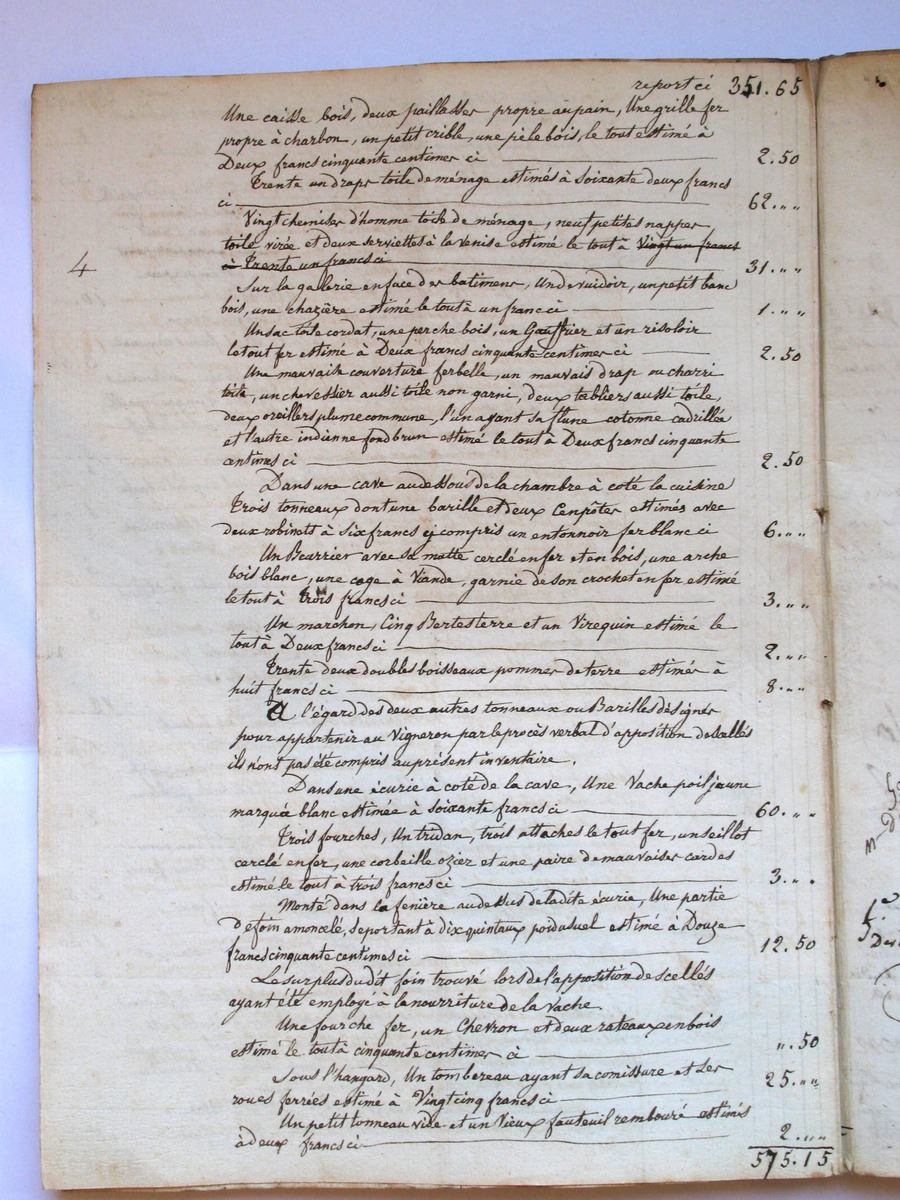 report ci 351.65
Une caisse bois, deux paillasses propre au pain, Une grille fer
propre à charbon, un petit crible, une pèle bois, le tout estimé à
Deux francs cinquante centimes ci 2.50
Trente un draps toile de ménage estimés à soixante deux francs
ci 62. " "
Vingt chemises d'homme toile de ménage, neuf petites nappes
toile virée et deux serviettes à la Venise estimé le tout à Vingt un francs
4
à Trente un francs ci 31. " "
Sur la galerie en face des batimens, Un devuidoir, un petit banc
bois, une chazière estimé le tout à un franc ci 1. " "
Un sac toile cordat, une perche bois, un Gauffrier et un risoloir
le tout fer estimé à Deux francs cinquante centimes ci 2.50
Une mauvaise couverture ferbelle, un mauvais drap ou charri
toile, un chevessier aussi toile non garni, deux tabliers aussi toile,
deux oreillers plume commune, l'un ayant sa flune cotonne cadrillée
et l'autre indienne fond brun estimé le tout à Deux francs cinquante
centimes ci 2.50
Dans une cave au dessous de la chambre à coté la cuisine
Trois tonneaux dont une barille et deux Cenpotes estimés avec
deux robinets à six francs y compris un entonnoir fer blanc ci 6. " "
Un Beurrier avec sa matte cerclé en fer et en bois, une arche
bois blanc, une cage à Viande, garnie de son crochet en fer estimé
le tout à trois francs ci 3. " "
Un marchon, Cinq Bertes terre et un Virequin estimé le
tout à Deux francs ci 2. " "
Trente deux doubles boisseaux pommes de terre estimés à
huit francs ci 8. " "
A l'égard des deux autres tonneaux ou Barilles désignés
pour appartenir au Vigneron par le procès verbal d'apposition de scellés
ils n'ont pas été compris au présent inventaire.
Dans une écurie à coté de la cave, Une Vache poil jaune
marqué blanc estimée à soixante francs ci 60. " "
Trois fourches, Un tridan, trois attaches le tout fer, un seillot
cerclé en fer, une corbeille ozier et une paire de mauvaises cardes
estimé le tout à trois francs ci 3. " "
Monté dans la fenière au dessus de ladite écurie, Une partie
de foin amoncelé, se portant à dix quintaux poid usuel estimé à Douze
francs cinquante centimes ci 12.50
Le surplus dudit foin trouvé lors de l'apposition de scellés
ayant été employé à la nourriture de la Vache.
Une fourche fer, un Chevron et deux rateaux en bois
estimé le tout à cinquante centimes ci ".50
Sous l'hangard, Un tombereau ayant sa comissure et ses
roues ferrées estimé à Vingt cinq francs ci 25. " "
Un petit tonneau vide et un Vieux fauteuil rembouré estimés
à deux francs ci 2. " "
575.15